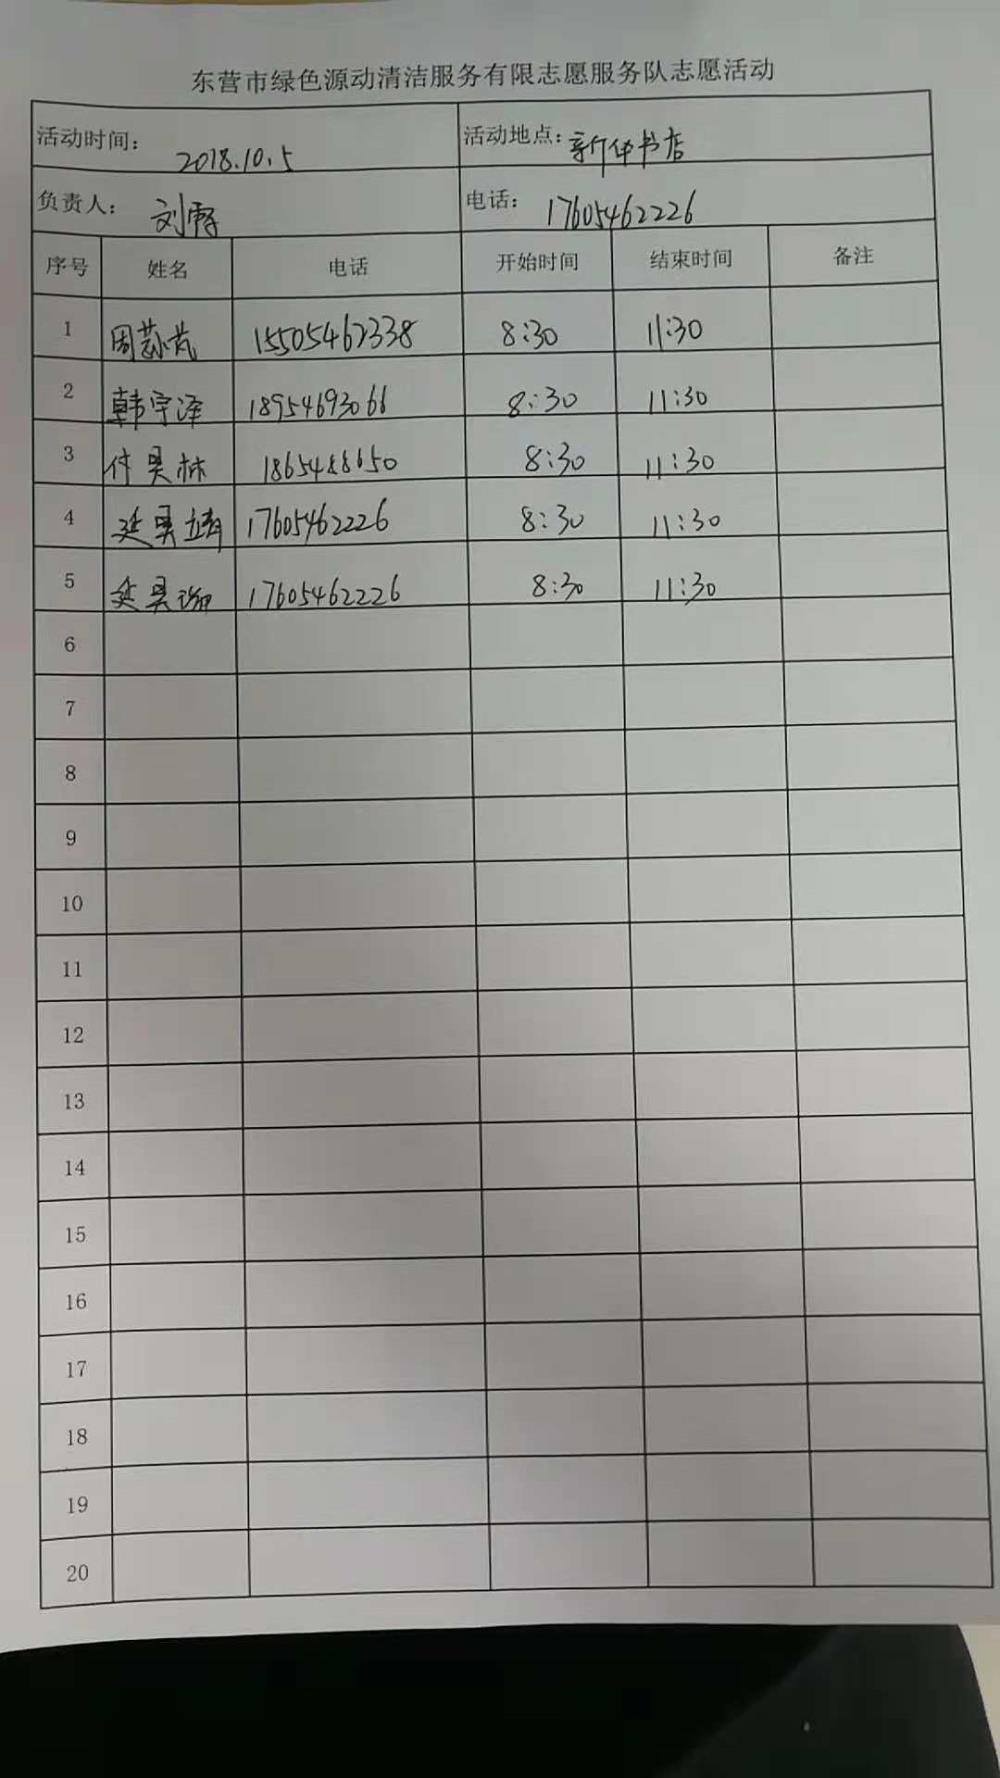 东营市绿色源动清洁服务有限志愿服务队志愿活动
活动时间: 2018.10.5 活动地点: 新华书店
负责人: 刘霞 电话: 17605462226
序号 姓名 电话 开始时间 结束时间 备注
1 周 15505462338 8:30 11:30
2 韩宇泽 18954693066 8:30 11:30
3 付昊林 1865488650 8:30 11:30
4 延昊靖 17605462226 8:30 11:30
5 延昊 17605462226 8:30 11:30
6
7
8
9
10
11
12
13
14
15
16
17
18
19
20